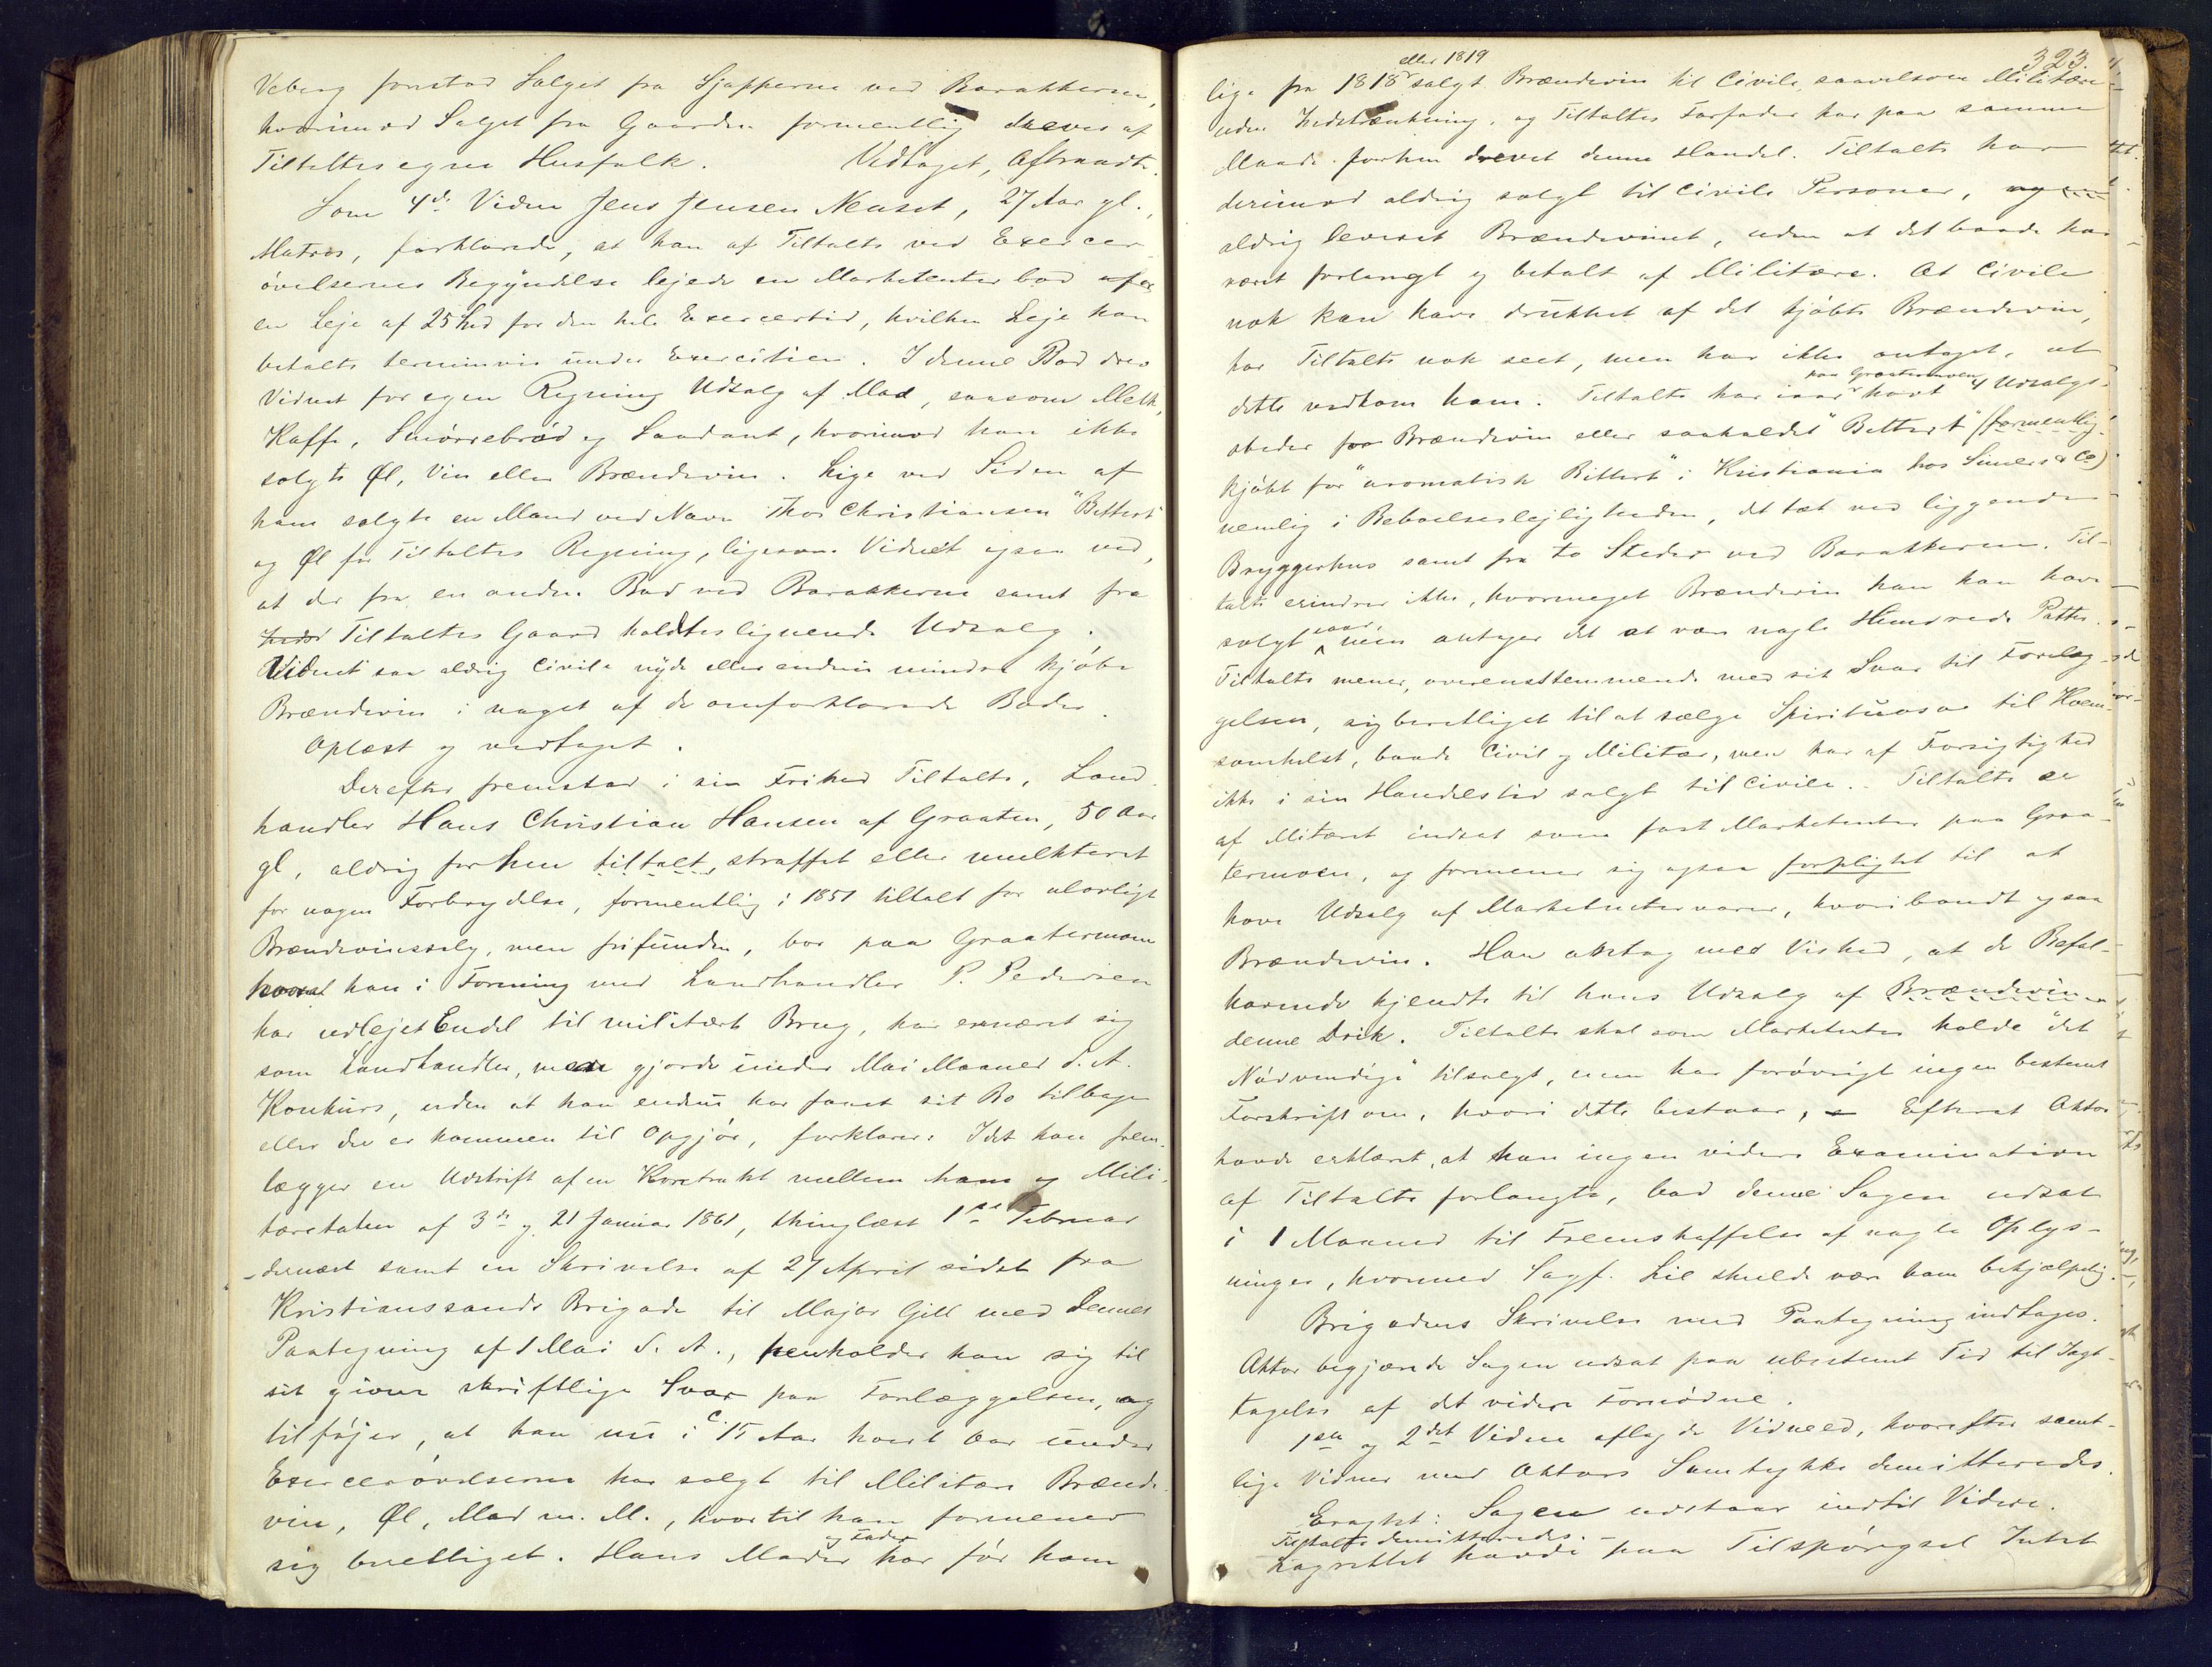 Veberg forestod Salget fra Sjapperne ved Barakkerne,
hvorimod Salget fra Gaarden formentlig dreves af
Tiltaltes egne Husfolk. Vedtaget, Aftraadte.
Som 4de Vidne Jens Jensen Neuset, 27 Aar gl.,
Matros, forklarede, at han af Tiltalte ved Exercer
øvelsernes Begyndelse lejede en Marketenterbod
en Leje af 25 Spd for den hele Exercertid, hvilken Leje han
betalte terminvis under Exercitien. I denne Bod drev
Vidnet for egen Regning Udsalg af Mad, saasom Melk,
Kaffe, Smørrebrød og Saadant, hvorimod han ikke
solgte Øl, Vin eller Brændevin. Lige ved Siden af
ham solgte en Mand ved Navn Thor Christiansen "Bittert"
og Øl for Tiltaltes Regning, ligesom Vidnet ogsaa ved,
at der fra en anden Bod ved Barakkerne samt fra
Tiltaltes Gaard holdtes lignende Udsalg.
Vidnet saa aldrig Civile nyde eller endnu mindre kjøbe
Brændevin i noget af de omforklarede Boder.
Oplæst og vedtaget.
Derefter fremstod i sin Frihed Tiltalte, Land
handler Hans Christian Hansen af Graaten, 50 Aar
gl, aldrig forhen tiltalt, straffet eller mulkteret
for nogen Forbrydelse, formentlig i 1851 tiltalt for ulovligt
Brændevinssalg, men frifunden, bor paa Graatermoen
han i Forening med Landhandler P. Pedersen
har udlejet Endel til militært Brug, har ernæret sig
som Landhandler, men gjorde under Mai Maaned d. A.
Konkurs, uden at han endnu har faaet sit Bo tilbage
eller der er kommen til Opgjør, forklarer: Idet han frem-
lægger en Udskrift af en Kontrakt mellem ham og Mili-
tæretaten af 3de og 21 Januar 1861, thinglæst 1ste Februar
-dernæst samt en Skrivelse af 27 April sidst fra
Kristianssands Brigade til Major Gjell med Dennes
Paategning af 1 Mai d. A., henholder han sig til
sit givne skriftlige Svar paa Forelæggelsen, og
tilføjer, at han nu i c. 15 Aar hvert Aar under
Exercerøvelserne har solgt til Militære Brænde-
vin, Øl, Mad m. M., hvortil han formener
sig berettiget. Hans Moder og Fader har før ham
323.
lige fra 1818 eller 1819 solgt Brændevin til Civile, saavelsom Militære
uden Indskrænkning, og Tiltaltes Forfader har paa samme
Maade forhen drevet denne Handel. Tiltalte har
derimod aldrig solgt til Civile Personer, og
aldrig leveret Brændevinet, uden at det baade har
været forlangt og betalt af Militære. At Civile
nok kan have drukket af det kjøbte Brændevin,
har Tiltalte nok seet, men har ikke antaget, at
dette vedkom ham. Tiltalte har iaar paa Graatermoen havt 4 Udsalgs-
steder for Brændevin eller saakaldet "Bittert" (formentlig
kjøbt for "aromatisk Bittert" i Kristiania hos Simers & Co)
nemlig i Beboelseslejligheden, det tæt ved liggende
Bryggerhus samt fra to Steder ved Barakkerne. Til-
talte erindrer ikke, hvormeget Brændevin han kan have
solgt iaar, men antager det at være nogle Hundrede Potter.
Tiltalte mener, overensstemmende med sit Svar til Forelæg-
gelsen, sig berettiget til at sælge Spirituosa til Hvem-
somhelst, baade Civil og Militær, men har af Forsigtighed
ikke i sin Handelstid solgt til Civile. Tiltalte er
af Militæret indsat som fast Marketenter paa Graa-
termoen, og formener sig ogsaa forpligtet til at
have Udsalg af Marketentervarer, hvoriblandt ogsaa
Brændevin. Han antog med Vished, at de Befal-
havende kjendte til hans Udsalg af Brændevin
denne Drik. Tiltalte skal som Marketenter holde "det
Nødvendige" tilsalgs, men har forøvrigt ingen bestemt
Forskrift om, hvori dette bestaar, Efterat Aktor
havde erklæret, at han ingen videre Examination
af Tiltalte forlangte, bad denne Sagen udsat
i 1 Maaned til Fremskaffelse af nogle Oplys-
ninger, hvormed Sagf. Lie skulde være ham behjælpelig.
Brigadens Skrivelse med Paategning indtages.
Aktor begjærede Sagen udsat paa ubestemt Tid til Iagt-
tagelse af det videre Fornødne.
1ste og 2det Vidne aflagde Vidneed, hvorefter samt-
lige Vidner med Aktors Samtykke demitteredes.
Eragtet: Sagen udstaar indtil Videre.
Tiltalte demitteredes.-
Lagrettet havde paa Tilspørgsel Intet